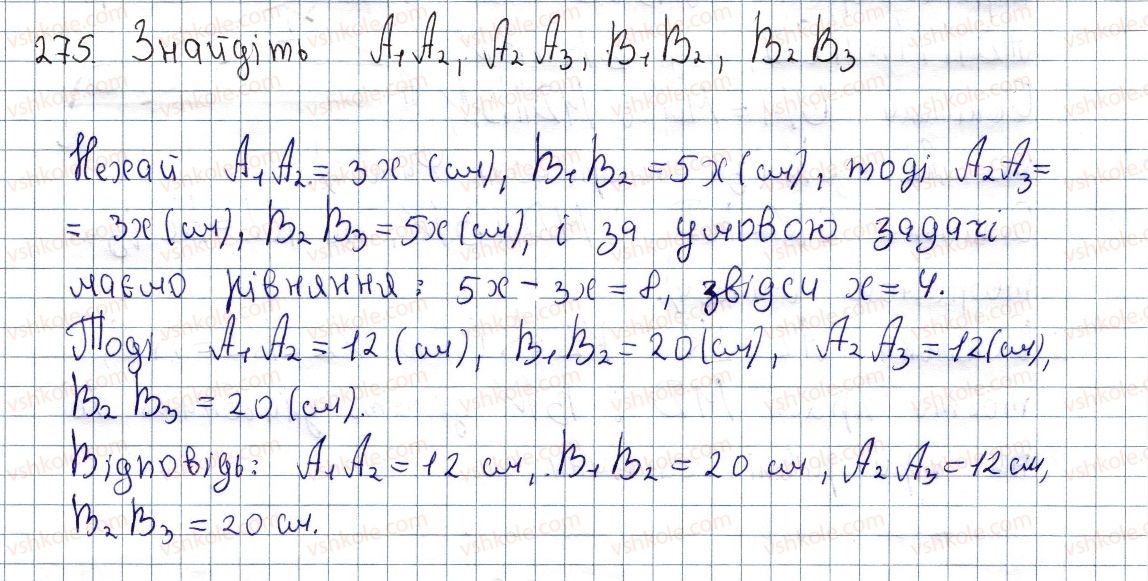 275. Знайдіть A₁A₂, A₂A₃, B₁B₂, B₂B₃
Нехай A₁A₂ = 3x (см), B₁B₂ = 5x (см), тоді A₂A₃ =
= 3x (см), B₂B₃ = 5x (см), і за умовою задачі
маємо рівняння: 5x - 3x = 8, звідси x = 4.
Тоді A₁A₂ = 12 (см), B₁B₂ = 20 (см), A₂A₃ = 12 (см),
B₂B₃ = 20 (см).
Відповідь: A₁A₂ = 12 см, B₁B₂ = 20 см, A₂A₃ = 12 см,
B₂B₃ = 20 см.